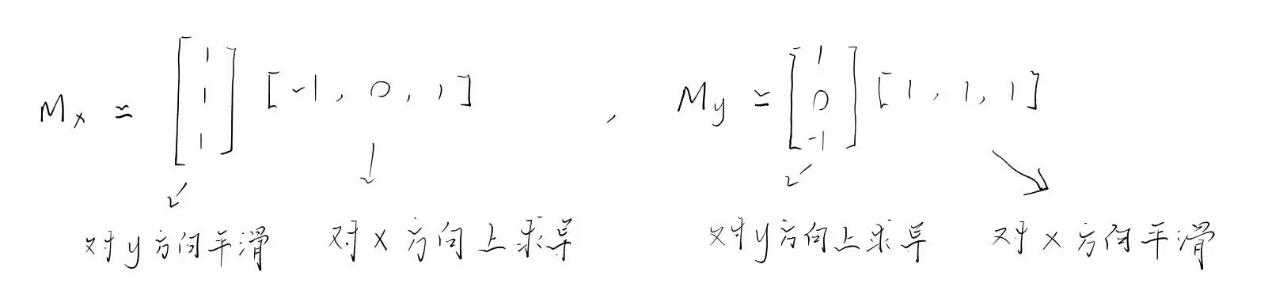 Mx ≃ [1 1 1] [-1, 0, 1] , My ≃ [1 0 -1] [1, 1, 1]
对y方向平滑 对x方向上求导 对y方向上求导 对x方向平滑